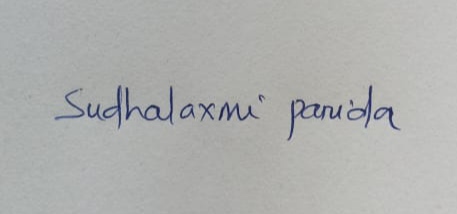 Sudhalaxmi parida